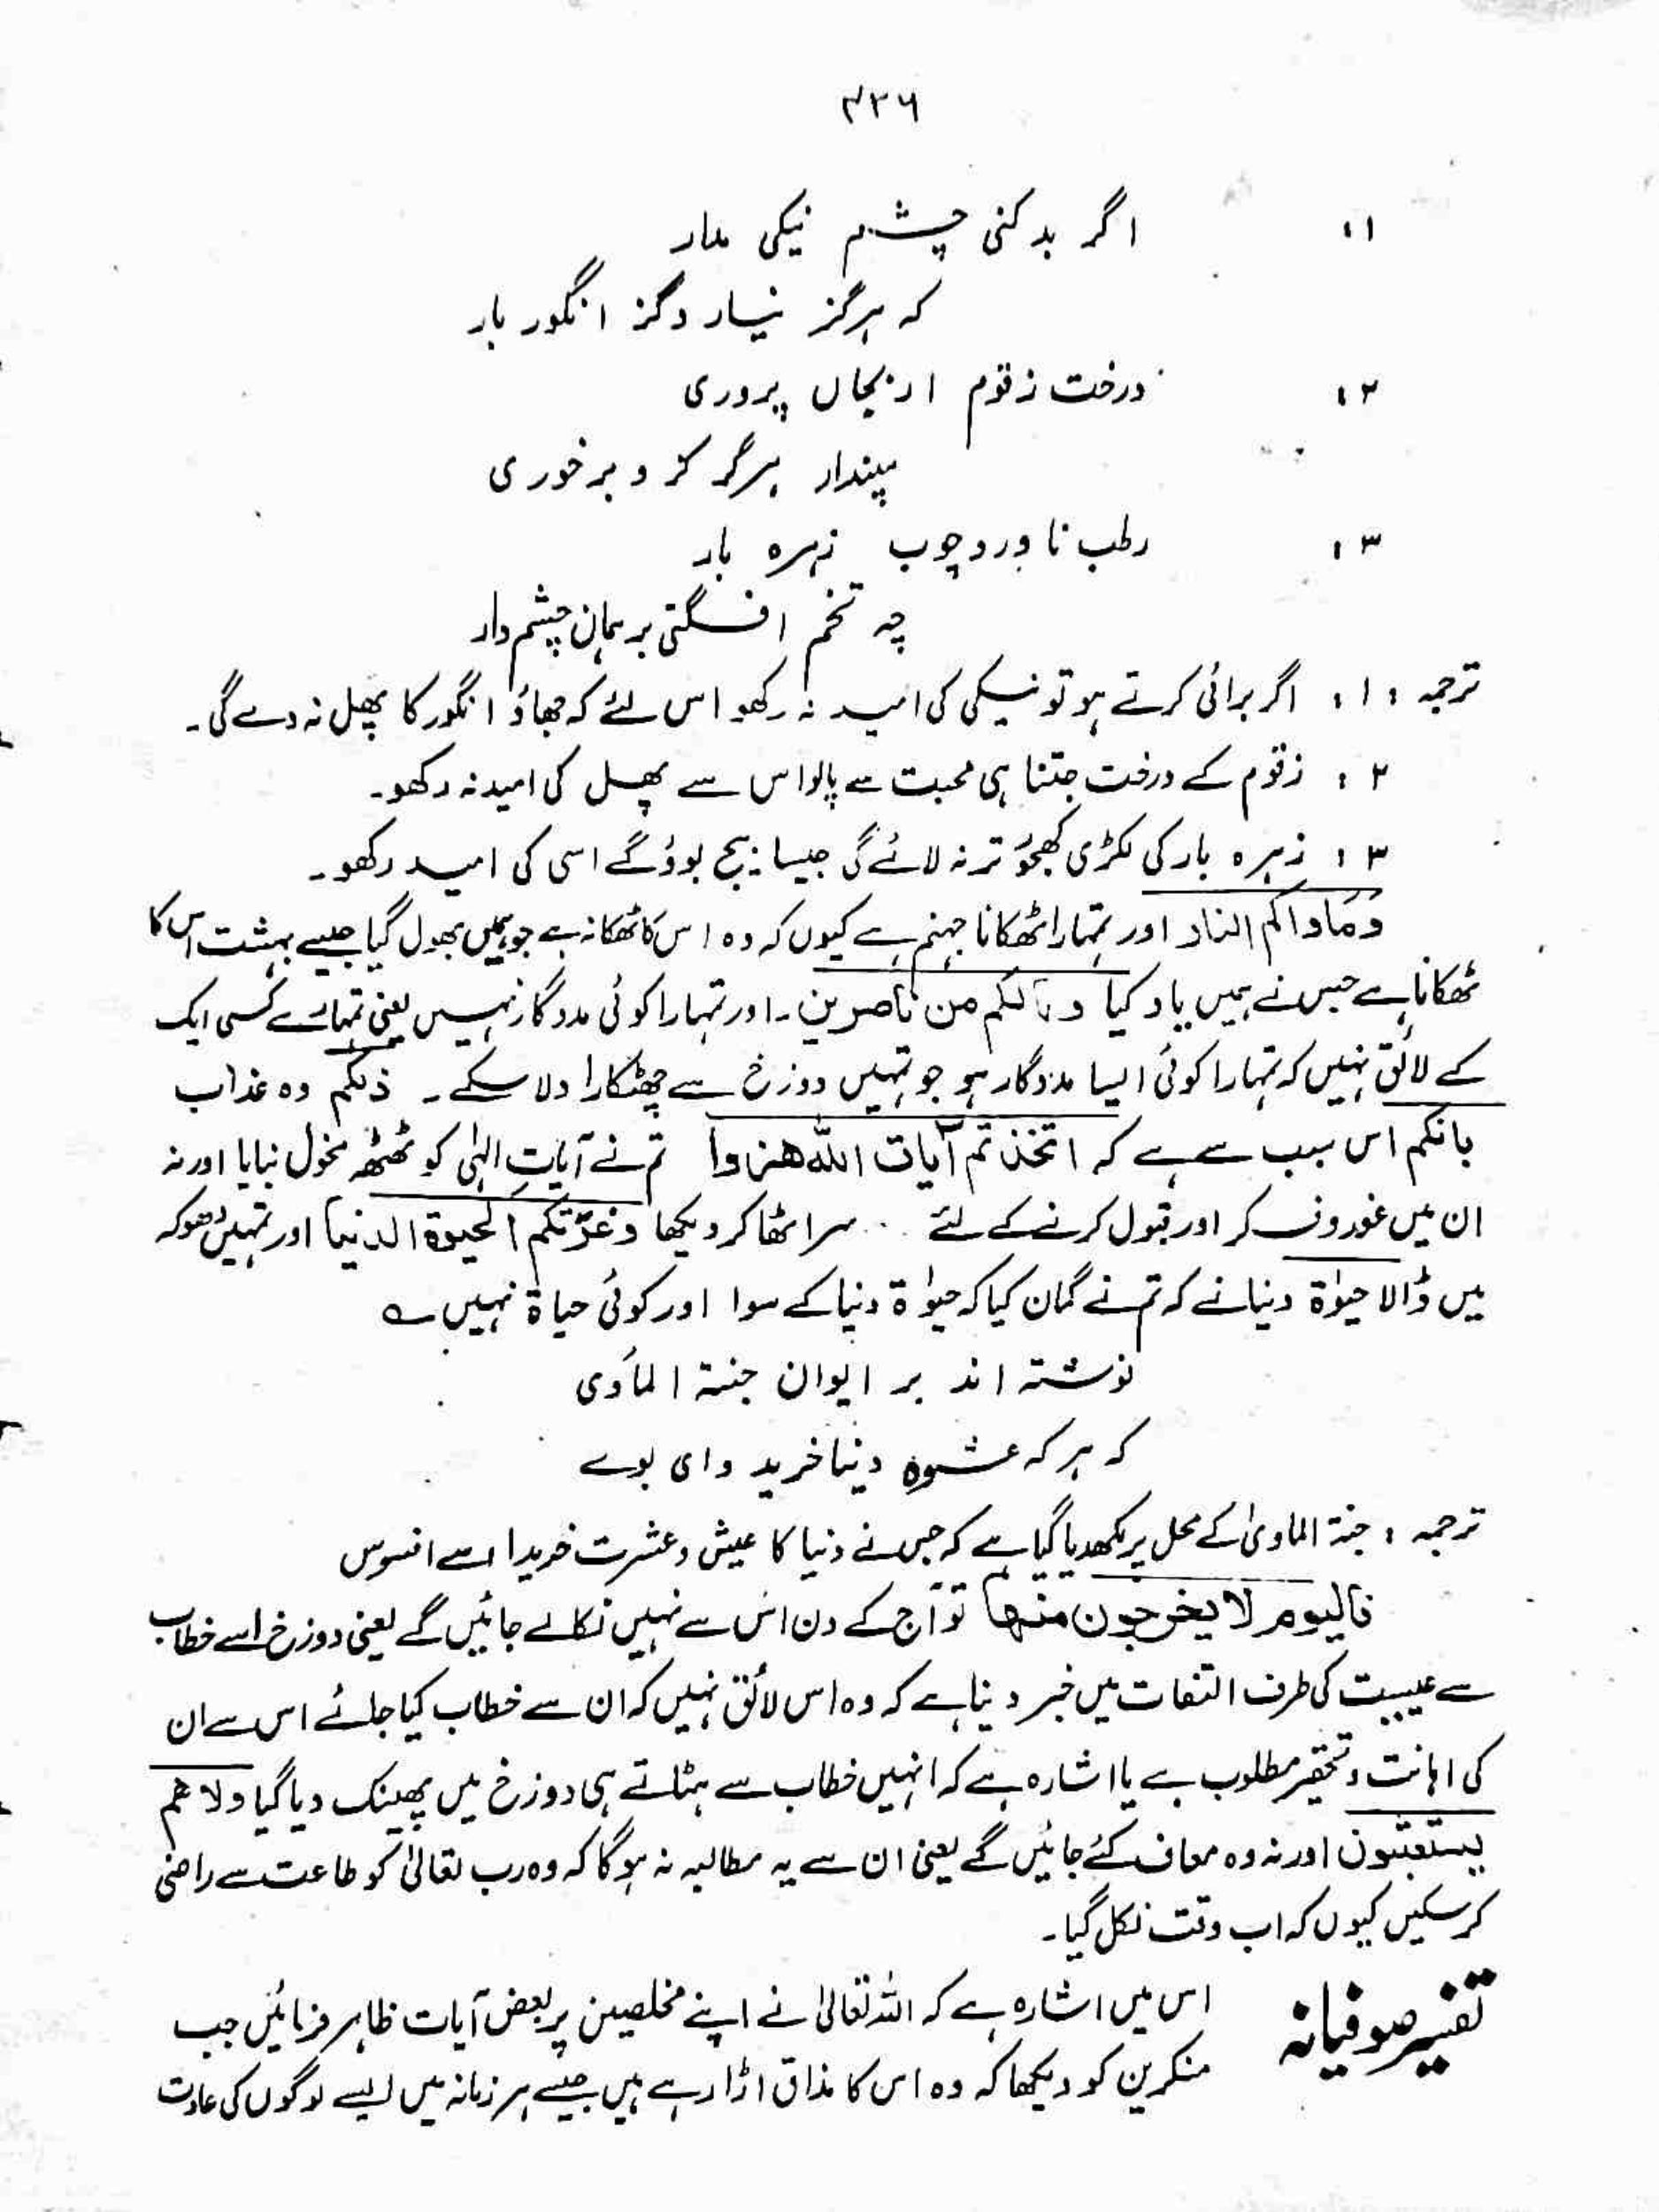 ۴۳۶
۱: اگر بد کنی چشم نیکی مدار
کہ ہرگز نیسار دگز انگور بار
۲: درخت زقوم ار بجاں پروری
مپندار ہرگر کز و برخوری
۳: رطب ناورد چوب زہرہ بار
چہ تخم افگنی بر ہمان چشم دار
ترجمہ : ۱: اگر برائی کرتے ہو تو نیکی کی امید نہ رکھو اس لئے کہ جھاؤ انگور کا پھل نہ دے گی۔
۲: زقوم کے درخت جتنا ہی محبت سے پالو اس سے پھل کی امید نہ رکھو۔
۳: زہرہ بار کی لکڑی کھجور تر نہ لائے گی جیسا بیج بوؤگے اسی کی امید رکھو۔
وَمَاواکم النار اور تمہارا ٹھکانا جہنم ہے کیوں کہ وہ اس کا ٹھکانہ ہے جو ہمیں بھول گیا جیسے بہشت اس کا
ٹھکانا ہے جس نے ہمیں یاد کیا ومالکم من ناصرین۔ اور تمہارا کوئی مددگار نہیں یعنی تمہارے کسی ایک
کے لائق نہیں کہ تمہارا کوئی ایسا مددگار ہو جو تمہیں دوزخ سے چھٹکارا دلا سکے۔ ذلکم وہ عذاب
بانکم اس سبب سے ہے کہ اتخذتم آیات اللہ ھزوا تم نے آیاتِ الہٰی کو ٹھٹھہ مخول بنایا اور نہ
ان میں غور وفکر اور قبول کرنے کے لئے .. سر اٹھا کر دیکھا وغرّتکم الحیوۃ الدنیا اور تمہیں دھوکہ
میں ڈالا حیوٰۃ دنیا نے کہ تم نے گمان کیا کہ حیوٰۃ دنیا کے سوا اور کوئی حیاۃ نہیں ؎
نوشتہ اند بر ایوان جنۃ الماَوی
کہ ہر کہ عشوہ دینا خرید وای بوے
ترجمہ : جنۃ الماویٰ کے محل پر لکھدیا گیا ہے کہ جس نے دنیا کا عیش و عشرت خریدا اسے افسوس
فالیوم لا یخرجون منھا تو آج کے دن اس سے نہیں نکالے جائیں گے یعنی دوزخ اسے خطاب
سے عیبیت کی طرف التفات میں خبر دینا ہے کہ وہ اس لائق نہیں کہ ان سے خطاب کیا جائے اس سے ان
کی اہانت وتحقیر مطلوب ہے یا اشارہ ہے کہ انہیں خطاب سے ہٹاتے ہی دوزخ میں پھینک دیا گیا ولا ھم
یستعتبون اور نہ وہ معاف کئے جائیں گے یعنی ان سے یہ مطالبہ نہ ہوگا کہ وہ رب تعالیٰ کو طاعت سے راضی
کر سکیں کیوں کہ اب وقت نکل گیا۔
تفسیر صوفیانہ اس میں اشارہ ہے کہ اللہ تعالیٰ نے اپنے مخلصین پر بعض آیات ظاہر فرمائیں جب
منکرین کو دیکھا کہ وہ اس کا مذاق اڑا رہے ہیں جیسے ہر زمانہ میں ایسے لوگوں کی عادت